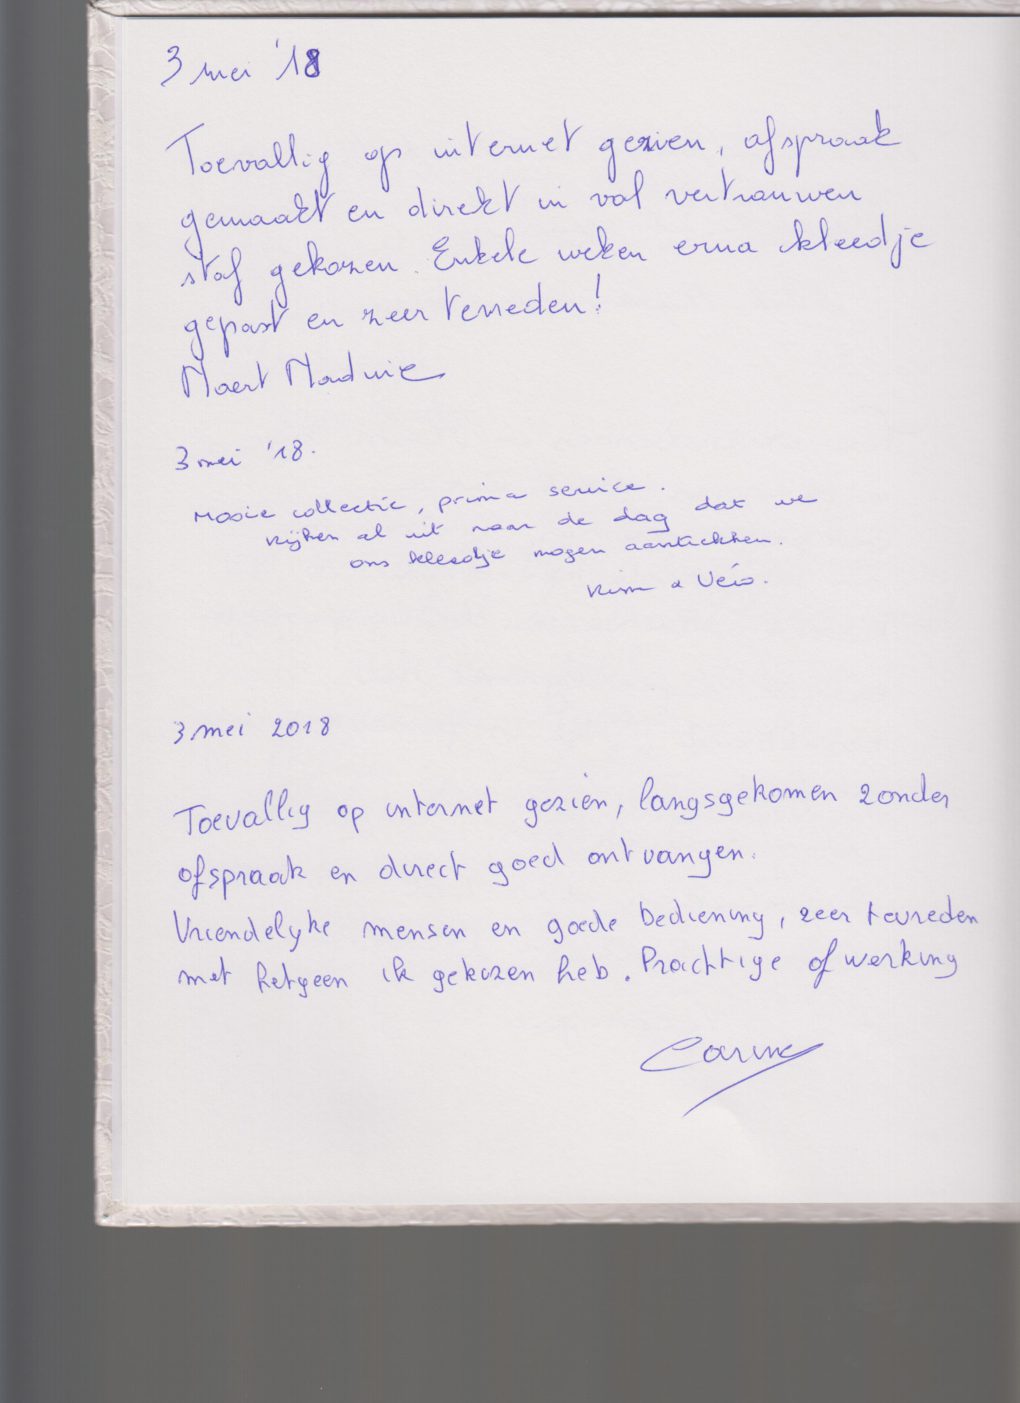 3 mei '18
Toevallig op internet gezien, afspraak
gemaakt en direkt in vol vertrouwen
stof gekozen. Enkele weken erna kleedje
gepast en zeer tevreden!
Maert
3 mei '18.
Mooie collectie, prima service.
Kijken al uit naar de dag dat we
ons kleedje mogen aantrekken.
Kim &
3 mei 2018
Toevallig op internet gezien, langsgekomen zonder
afspraak en direct goed ontvangen.
Vriendelyke mensen en goede bediening, zeer tevreden
met hetgeen ik gekozen heb. Prachtige afwerking
Carine